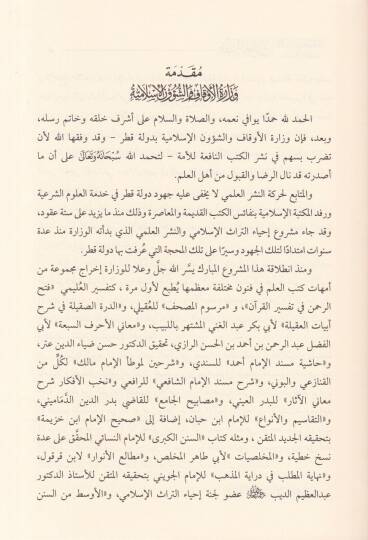 مُقَدِّمَة
وزارة الأوقاف والشؤون الإسلامية
الحمد لله حمدًا يوافي نعمه، والصلاة والسلام على أشرف خلقه وخاتم رسله،
وبعد، فإن وزارة الأوقاف والشؤون الإسلامية بدولة قطر - وقد وفقها الله لأن
تضرب بسهم في نشر الكتب النافعة للأمة - لتحمد الله سُبْحَانَهُ وَتَعَالَى على أن ما
أصدرته قد نال الرضا والقبول من أهل العلم.
والمتابع لحركة النشر العلمي لا يخفى عليه جهود دولة قطر في خدمة العلوم الشرعية
ورفد المكتبة الإسلامية بنفائس الكتب القديمة والمعاصرة وذلك منذ ما يزيد على ستة عقود،
وقد جاء مشروع إحياء التراث الإسلامي والنشر العلمي الذي بدأته الوزارة منذ عدة
سنوات امتدادًا لتلك الجهود وسيرًا على تلك المحجة التي عُرفت بها دولة قطر.
ومنذ انطلاقة هذا المشروع المبارك يسَّر الله جلَّ وعلا للوزارة إخراج مجموعة من
أمهات كتب العلم في فنون مختلفة معظمها يُطبع لأول مرة، كتفسير العُليمي «فتح
الرحمن في تفسير القرآن»، و«مرسوم المصحف» للعُقيلي، و«الدرة الصقيلة في شرح
أبيات العقيلة» لأبي بكر عبد الغني المشتهر باللبيب، و«معاني الأحرف السبعة» لأبي
الفضل عبد الرحمن بن أحمد بن الحسن الرازي، تحقيق الدكتور حسن ضياء الدين عتر،
و«حاشية مسند الإمام أحمد» للسندي، و«شرحين لموطأ الإمام مالك» لكُلٍّ من
القنازعي والبوني، و«شرح مسند الإمام الشافعي» للرافعي و«نخب الأفكار شرح
معاني الآثار» للبدر العيني، و«مصابيح الجامع» للقاضي بدر الدين الدَّماميني،
و«التقاسيم والأنواع» للإمام ابن حبان، إضافة إلى «صحيح الإمام ابن خزيمة»
بتحقيقه الجديد المتقن، ومثله كتاب «السنن الكبرى» للإمام النسائي المحقَّق على عدة
نسخ خطية، و«المخلصيات» لأبي طاهر المخلص، و«مطالع الأنوار» لابن قرقول،
و«نهاية المطلب في دراية المذهب» للإمام الجويني بتحقيقه المتقن للأستاذ الدكتور
عبدالعظيم الديب رحمه الله عضو لجنة إحياء التراث الإسلامي، و«الأوسط من السنن